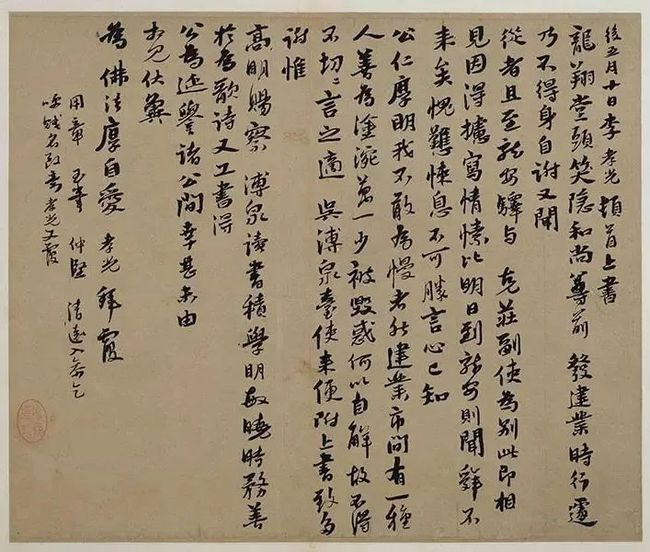 後五月十日李孝光頓首上書
龍翔堂頭笑隐和尚尊前 發建業時行遽
乃不得身自謝又聞
從者且至龍安驛与 克莊副使為別此即相
見因得攄寫情愫比明日到龍安則聞辤不
来矣愧戁悚息不可勝言心已知
公仁厚明我不敢為慢者然建業市間有一種
人善為塗涴萬一少被毀惑何以自解故不得
不切〻言之適 吳溥泉臺使来便附上書致多
謝惟
高明賜察 溥泉讀書積學明敏曉時務善
於為歌詩又工書得
公為延譽諸公間幸甚未由
相見伏冀
為佛法厚自愛 孝光 拜覆
用章 仲堅 清遠
孝光又覆